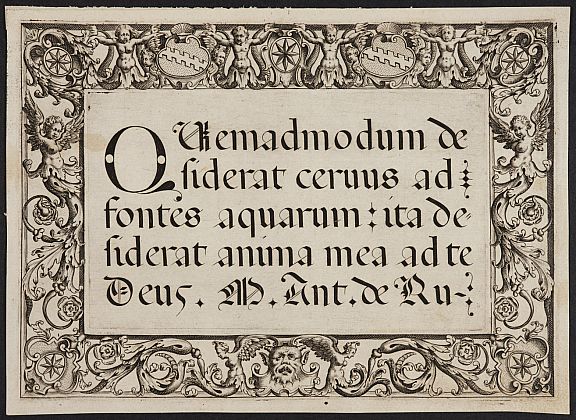 QUemadmodum de
siderat ceruus ad
fontes aquarum: ita de-
siderat anima mea ad te
Deus. M. Ant. de Ru-